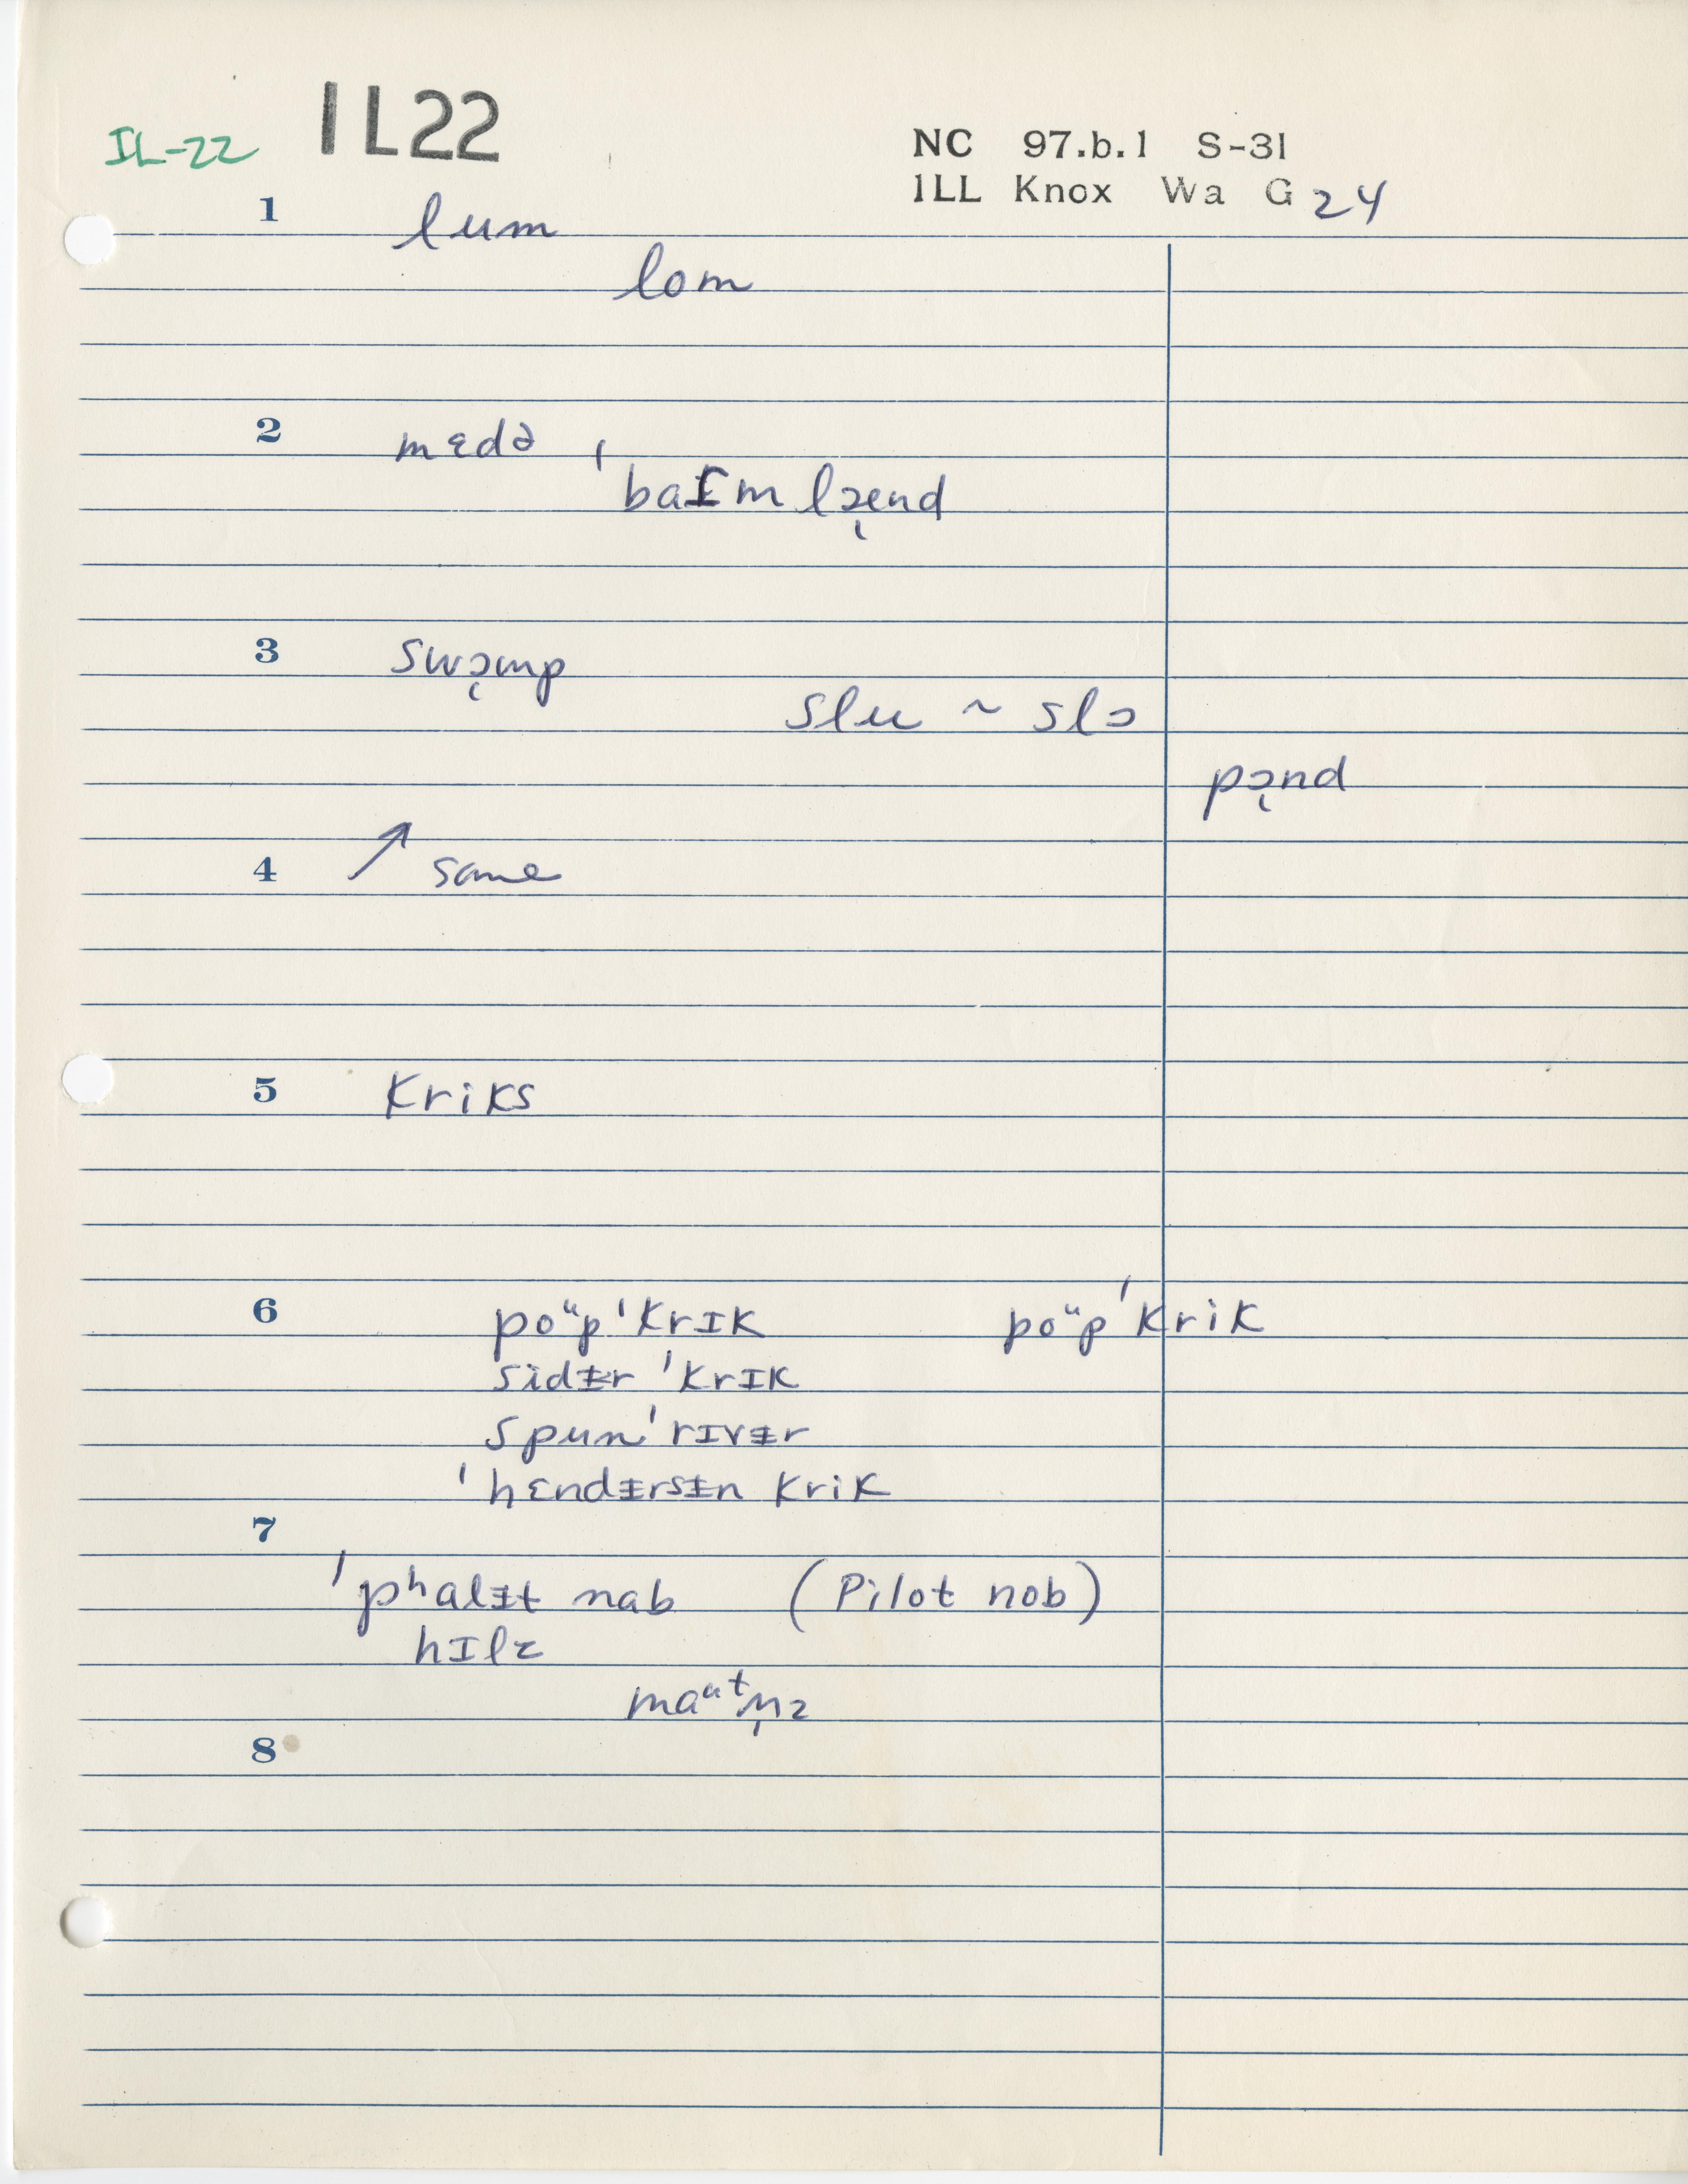 IL-22 IL22
NC 97.b.1 S-31
ILL Knox Wa G 24
1 lum
lom
2 mɛdə
ˈbaɪm lɔ̨ænd
3 swɔ̨mp
slu ~ slɔ
pɔ̨nd
4 ↗ same
5 kriks
6 poᵘp ˈkrɪk poᵘp ˈkrik
sidᵻr ˈkrɪk
spun ˈrɪvᵻr
ˈhɛndᵻrsᵻn krik
7
ˈpʰalᵻt nab (Pilot nob)
hɪlz
maᵘᵗn̩z
8